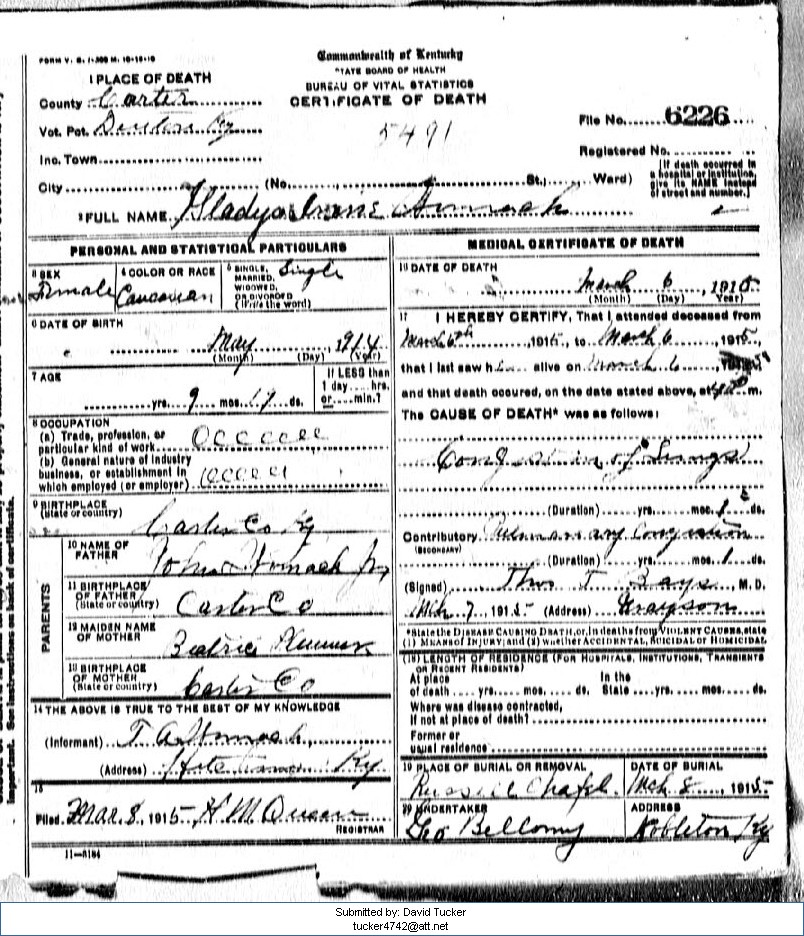 FORM V. S. 1-
Commonwealth of Kentucky
STATE BOARD OF HEALTH
BUREAU OF VITAL STATISTICS
CERTIFICATE OF DEATH
1 PLACE OF DEATH
County Carter
Vot. Pct. Denton Ky
5491
File No. 6226
Inc. Town
Registered No.
City (No. St., Ward)
[If death occurred in a hospital or institution, give its NAME instead of street and number.]
2 FULL NAME Gladys
PERSONAL AND STATISTICAL PARTICULARS
3 SEX Female
4 COLOR OR RACE Caucasian
5 SINGLE, MARRIED, WIDOWED, OR DIVORCED (Write the word) Single
6 DATE OF BIRTH
May 1914
(Month) (Day) (Year)
7 AGE
yrs. 9 mos. 19 ds.
If LESS than 1 day....hrs. or....min.?
8 OCCUPATION
(a) Trade, profession, or particular kind of work
(b) General nature of industry
business, or establishment in
which employed (or employer)
9 BIRTHPLACE
(State or country) Carter Co Ky
PARENTS
10 NAME OF FATHER John Jr
11 BIRTHPLACE OF FATHER (State or country) Carter Co
12 MAIDEN NAME OF MOTHER Beatrice
13 BIRTHPLACE OF MOTHER (State or country) Carter Co
14 THE ABOVE IS TRUE TO THE BEST OF MY KNOWLEDGE
(Informant) T A
(Address) Ky
15
Filed Mar. 8, 1915 H M
REGISTRAR
11-5184
MEDICAL CERTIFICATE OF DEATH
16 DATE OF DEATH
March 6, 1915
(Month) (Day) Year)
17 I HEREBY CERTIFY, That I attended deceased from
March 6th, 1915, to March 6, 1915,
that I last saw h alive on March 6
and that death occured, on the date stated above, at m.
The CAUSE OF DEATH* was as follows:
Congestion of Lungs
(Duration) yrs. mos. 1 ds.
Contributory Pulmonary Congestion
(SECONDARY)
(Duration) yrs. mos. 1 ds.
(Signed) Thos T , M.D.
Mch 7, 1915 (Address) Grayson
*State the DISEASE CAUSING DEATH, or, in deaths from VIOLENT CAUSES, state
(1) MEANS OF INJURY; and (2) whether ACCIDENTAL, SUICIDAL or HOMICIDAL
(18) LENGTH OF RESIDENCE (FOR HOSPITALS, INSTITUTIONS, TRANSIENTS
OR RECENT RESIDENTS)
At place In the
of death yrs. mos. ds. State yrs. mos. ds.
Where was disease contracted,
If not at place of death?
Former or
usual residence
19 PLACE OF BURIAL OR REMOVAL
Russell Chapel
DATE OF BURIAL
Mch. 8, 1915
20 UNDERTAKER
Geo Bellomy
ADDRESS
Nobleton Ky
Important. See instructions on back of certificate.
Submitted by: David Tucker
tucker4742@att.net